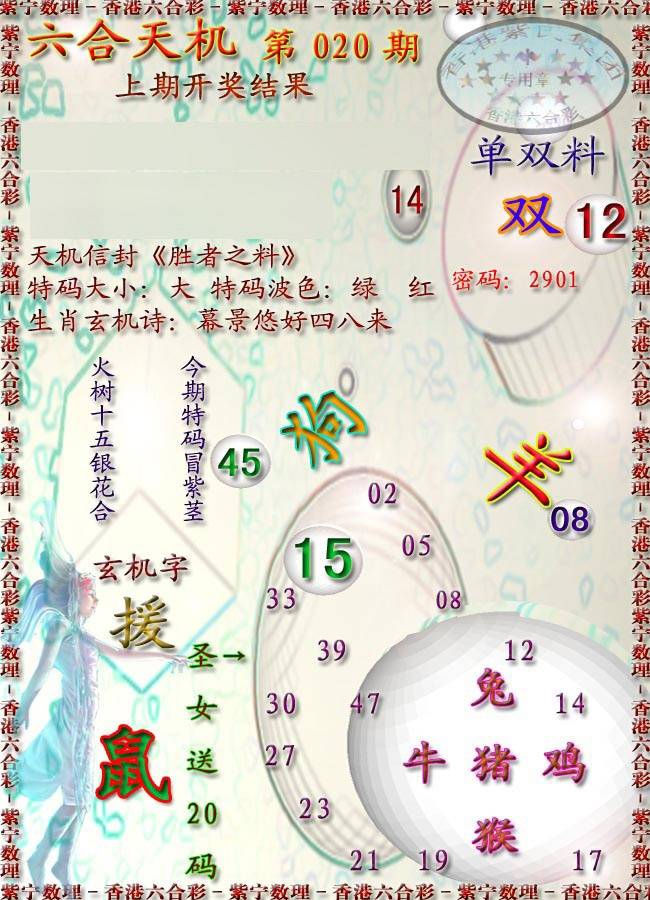 紫宁数理－香港六合彩－紫宁数理－香港六合彩－紫宁数理－香港六合彩
六合天机 第 020 期
上期开奖结果
专用章
香港六合彩
单双料
14
双 12
天机信封《胜者之料》
特码大小：大 特码波色：绿 红
密码：2901
生肖玄机诗：幕景悠好四八来
火树十五银花合
今期特码冒紫茎
45
狗
羊
08
02
05
15
33
08
玄机字
援
圣→
女
送
20
码
鼠
39
30
47
27
23
21
12
兔
14
牛 猪 鸡
猴
19
17
紫宁数理－香港六合彩－紫宁数理－香港六合彩－紫宁数理－香港六合彩